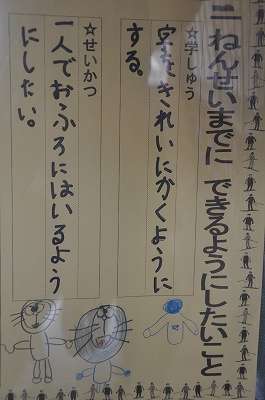 二ねんせいまでに できるようにしたいこと
☆学しゅう
字をきれいにかくように
する。
☆せいかつ
一人でおふろにはいるよう
にしたい。